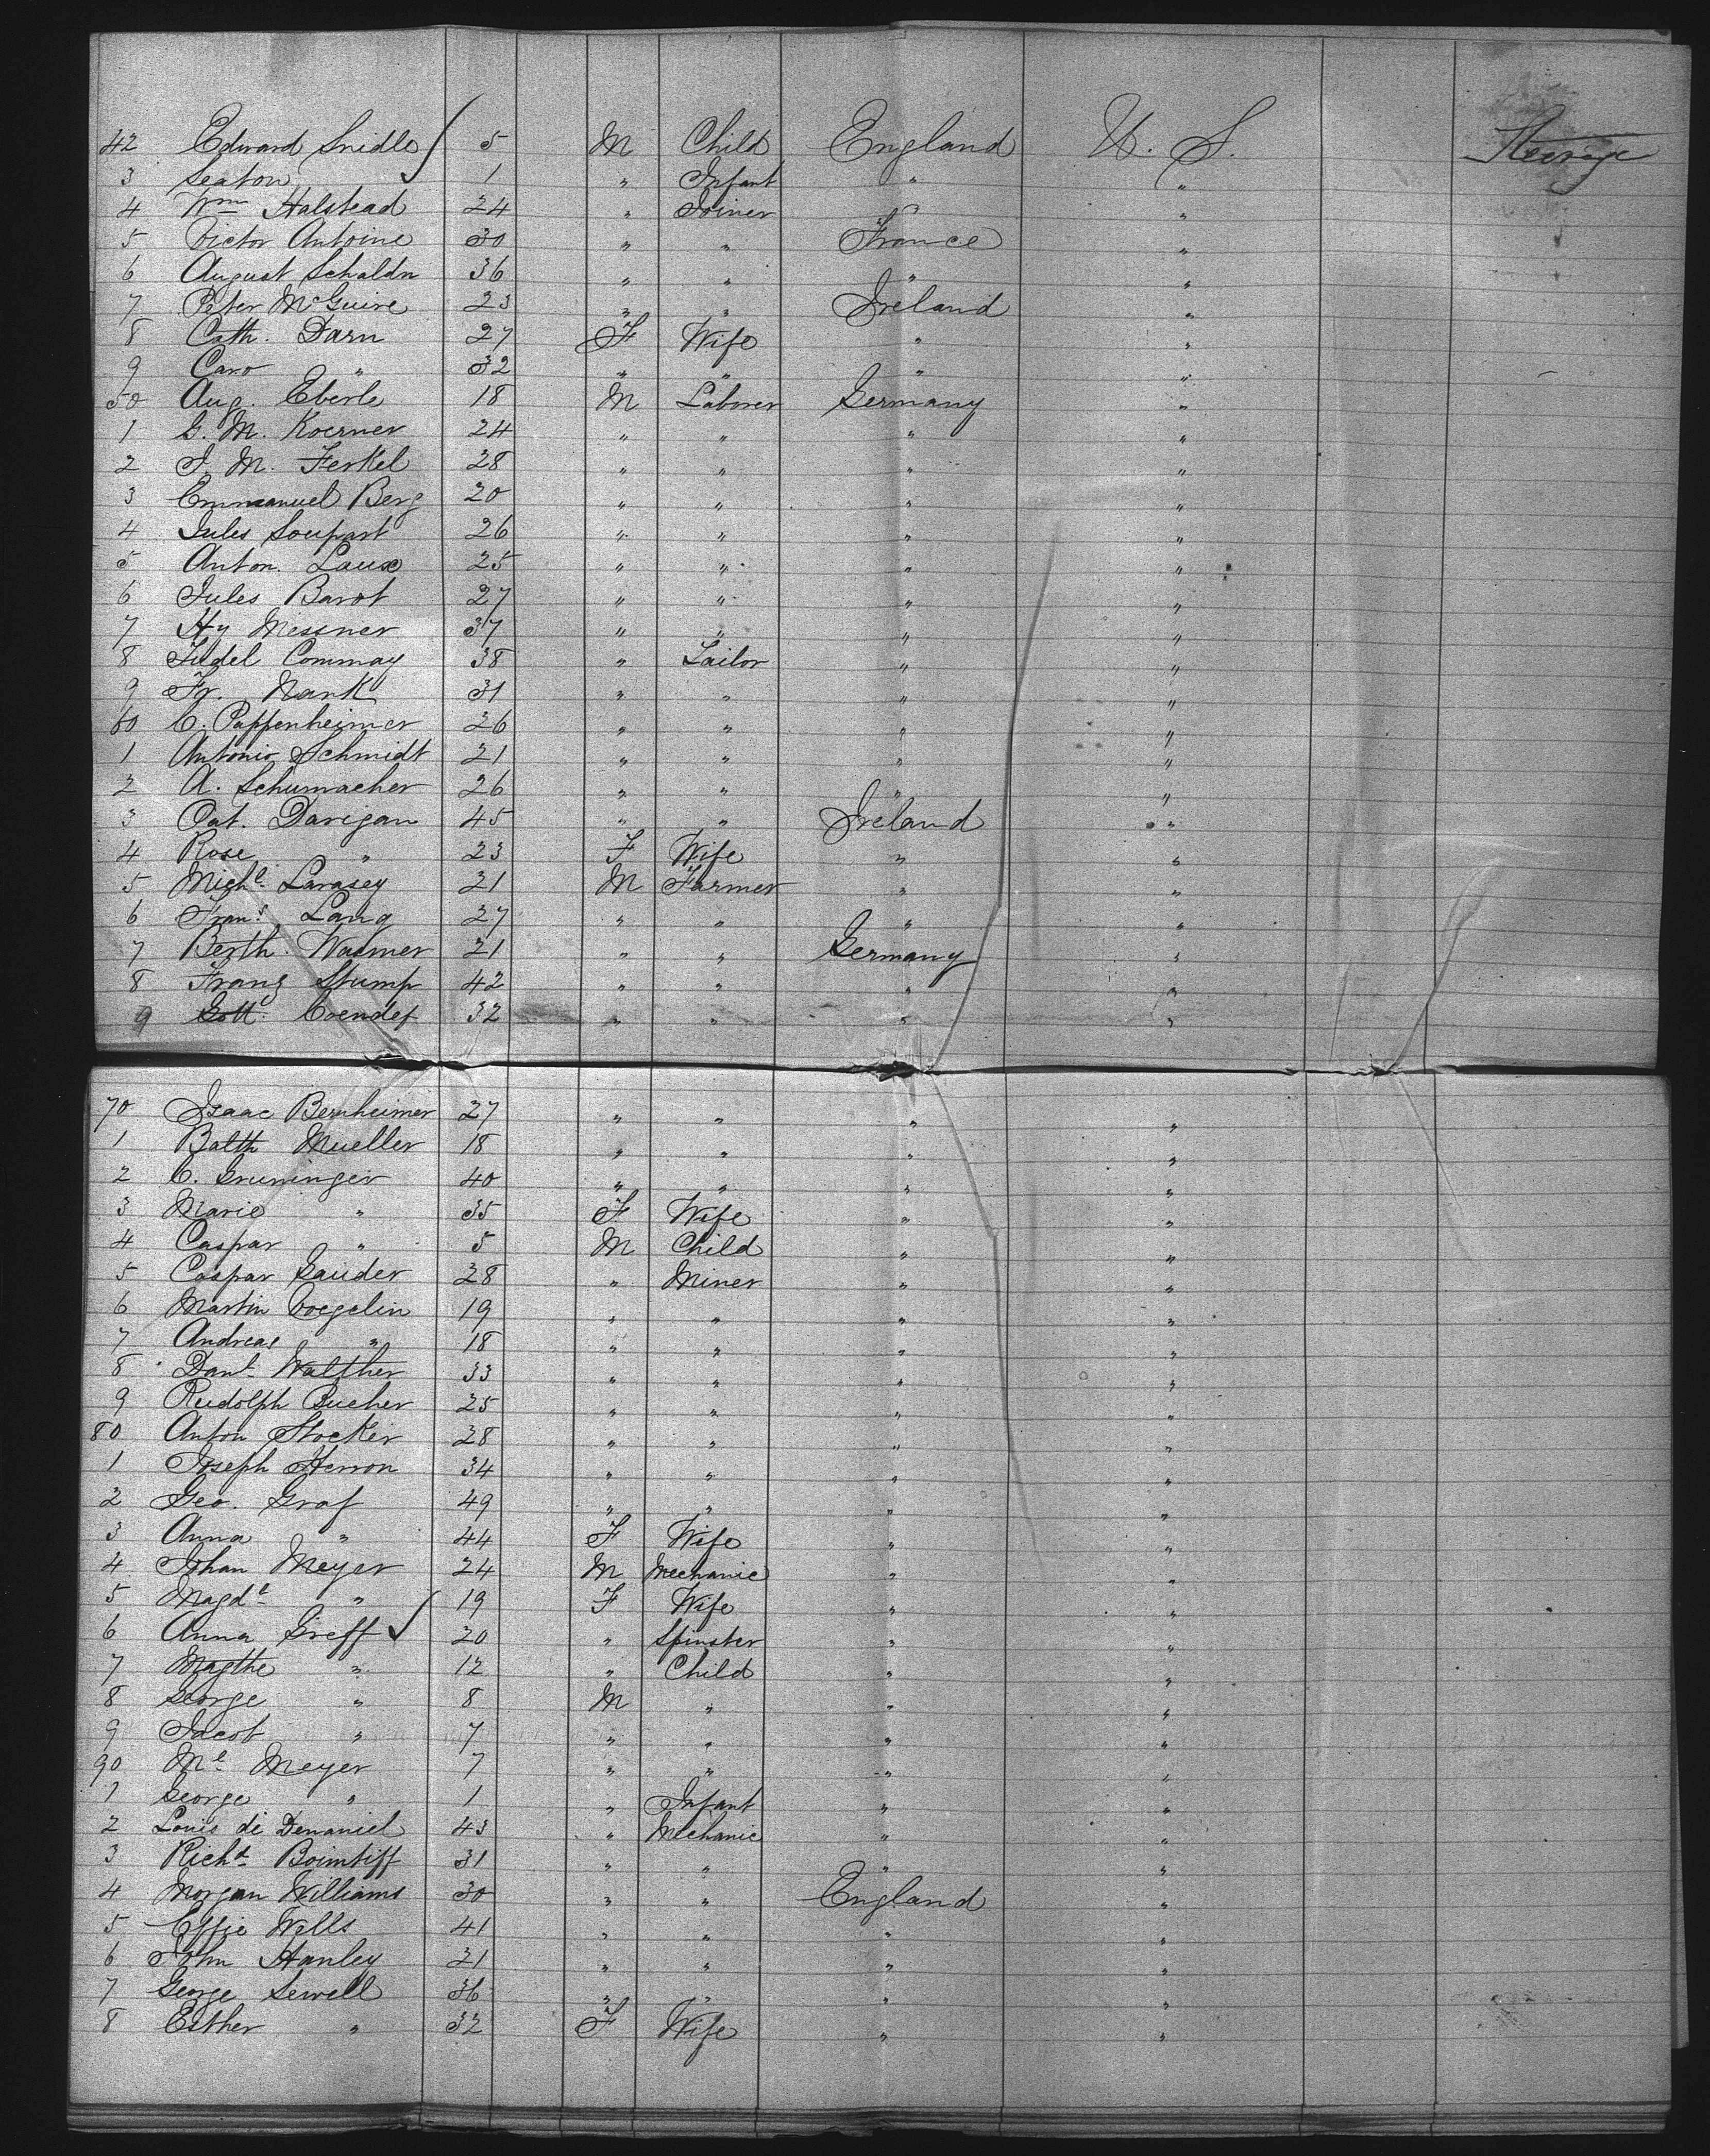 42 Edward Snidle 5 M Child England U. S. Steerage
3 Seaton 1 " Infant " "
4 Wm Halstead 24 " Joiner " "
5 Victor Antoine 30 " " France "
6 August Schaldn 36 " " " "
7 Peter McGuire 23 " " Ireland "
8 Cath. Darn 27 F Wife " "
9 Caro " 32 " " " "
50 Aug. Eberle 18 M Laborer Germany "
1 G. M. Koerner 24 " " " "
2 J. M. Ferkel 28 " " " "
3 Emmanuel Berg 20 " " " "
4 Jules Soupart 26 " " " "
5 Anton. Laux 25 " " " "
6 Jules Barot 27 " " " "
7 Hy Messner 37 " " " "
8 Fidel Commay 38 " Tailor " "
9 Fr. Nank 31 " " " "
60 C. Pappenheimer 26 " " " "
1 Antonio Schmidt 21 " " " "
2 A. Schumacher 26 " " " "
3 Pat. Darigan 45 " " Ireland "
4 Rose " 23 F Wife " "
5 Michl Larasey 21 M Farmer " "
6 Frans Lang 27 " " " "
7 Berth. Wasmer 21 " " Germany "
8 Franz Stump 42 " " " "
9 Gott. 32 " " " "
70 Isaac Bernheimer 27 " " " "
1 Balth Mueller 18 " " " "
2 C. Gruninger 40 " " " "
3 Marie " 35 F Wife " "
4 Caspar " 5 M Child " "
5 Caspar Sauder 28 " Miner " "
6 Martin Voegelin 19 " " " "
7 Andreas " 18 " " " "
8 Danl Walther 33 " " " "
9 Rudolph Bucher 25 " " " "
80 Anton Stocker 28 " " " "
1 Joseph Herron 34 " " " "
2 Geo. Graf 49 " " " "
3 Anna " 44 F Wife " "
4 Johan Meyer 24 M Mechanic " "
5 Magdl " 19 F Wife " "
6 Anna Greff 20 " Spinster " "
7 Magthe " 12 " Child " "
8 George " 8 M " " "
9 Jacob " 7 " " " "
90 Ml Meyer 7 " " " "
1 George " 1 " Infant " "
2 Louis di Denaniel 43 " Mechanic " "
3 Richd Bointiff 31 " " " "
4 Morgan Williams 30 " " England "
5 Effie Wells 41 " " " "
6 John Hanley 21 " " " "
7 George Sewell 36 " " " "
8 Esther " 32 F Wife " "